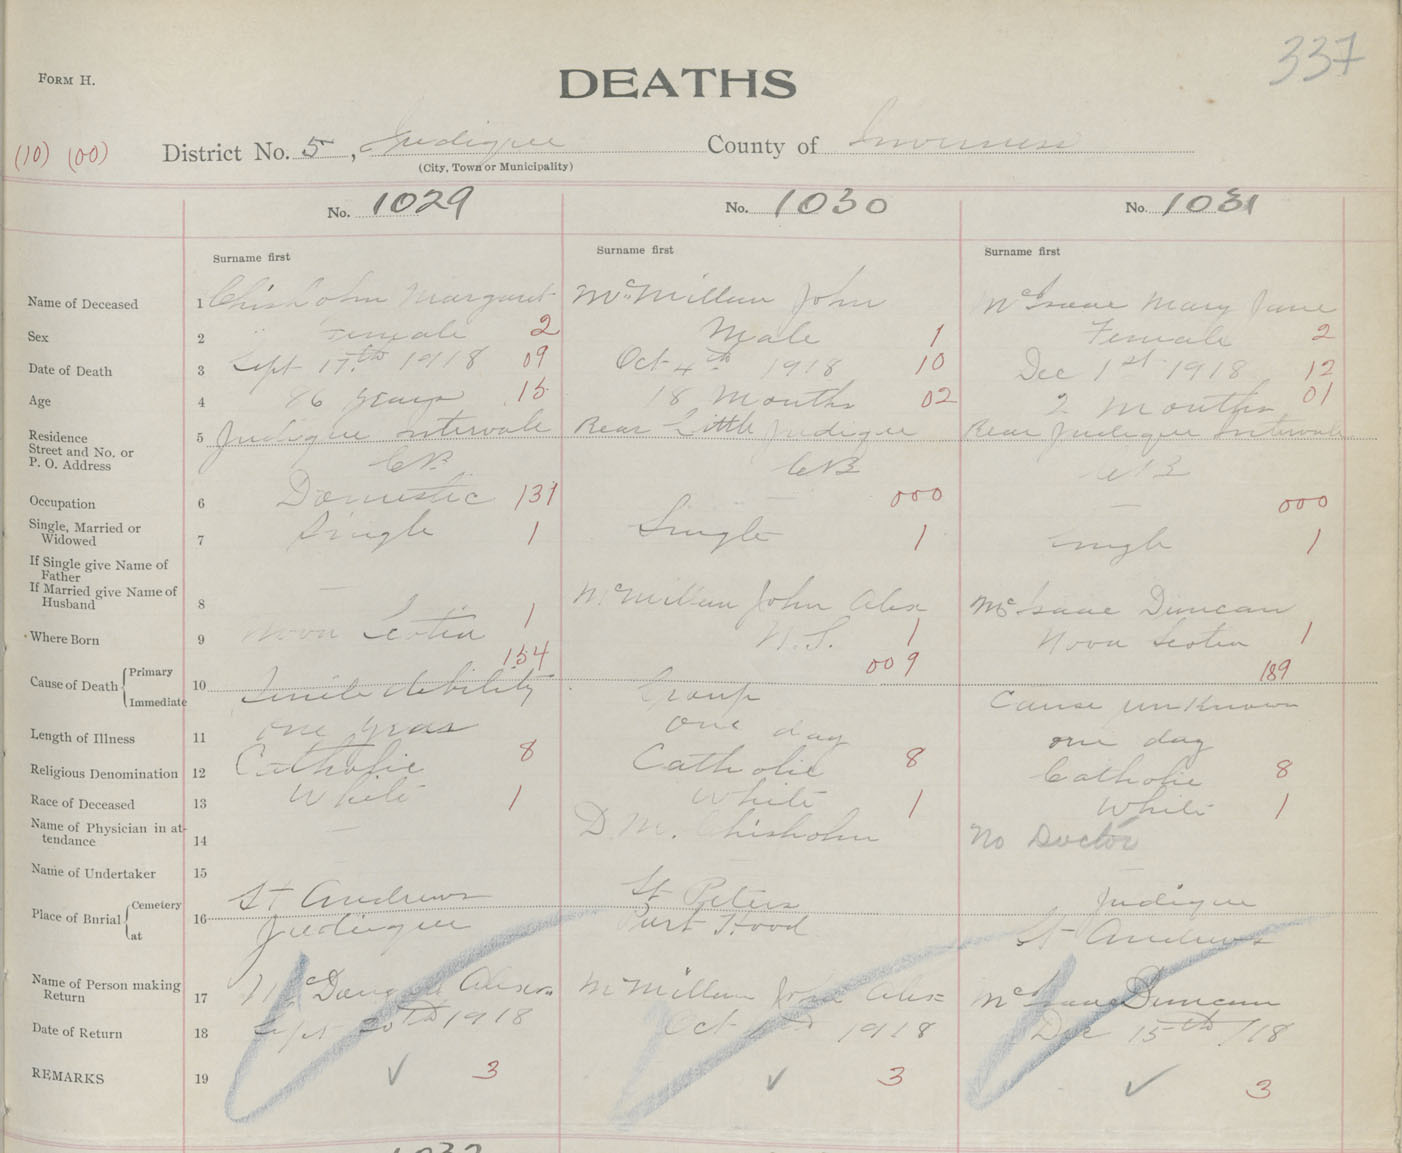 337
FORM H.
DEATHS
(10) (00)
District No. 5, Judique County of Inverness
(City, Town or Municipality)
No. 1029 No. 1030 No. 1031
Surname first Surname first Surname first
Name of Deceased 1 Chisholm Margaret McMillan John McIsaac Mary Jane
Sex 2 Female 2 Male 1 Female 2
Date of Death 3 Sept 17th 1918 09 Oct 4th 1918 10 Dec 1st 1918 12
Age 4 86 years 15 18 Months 02 2 Months 01
Residence
Street and No. or
P. O. Address
5 Judique Intervale Rear Little Judique Rear Judique Intervale
CB CB CB
Occupation 6 Domestic 131 000 — 000
Single, Married or
Widowed
7 Single 1 Single 1 Single 1
If Single give Name of
Father
If Married give Name of
Husband
8 — McMillan John Alex McIsaac Duncan
Where Born 9 Nova Scotia 1 N.S. 1 Nova Scotia 1
154 009 189
Cause of Death { Primary
Immediate
10 Senile debility Croup Cause unknown
Length of Illness 11 one year one day one day
Religious Denomination 12 Catholic 8 Catholic 8 Catholic 8
Race of Deceased 13 White 1 White 1 White 1
Name of Physician in at-
tendance
14 — D. M. Chisholm No Doctor
Name of Undertaker 15
Place of Burial { Cemetery
at
16 St Andrews St Peters Judique
Judique Port Hood St Andrews
Name of Person making
Return
17 McMillan John Alex McIsaac Duncan
Date of Return 18 Sept 20th 1918 Oct 1918 Dec 15th /18
REMARKS 19 ✓ 3 ✓ 3 ✓ 3